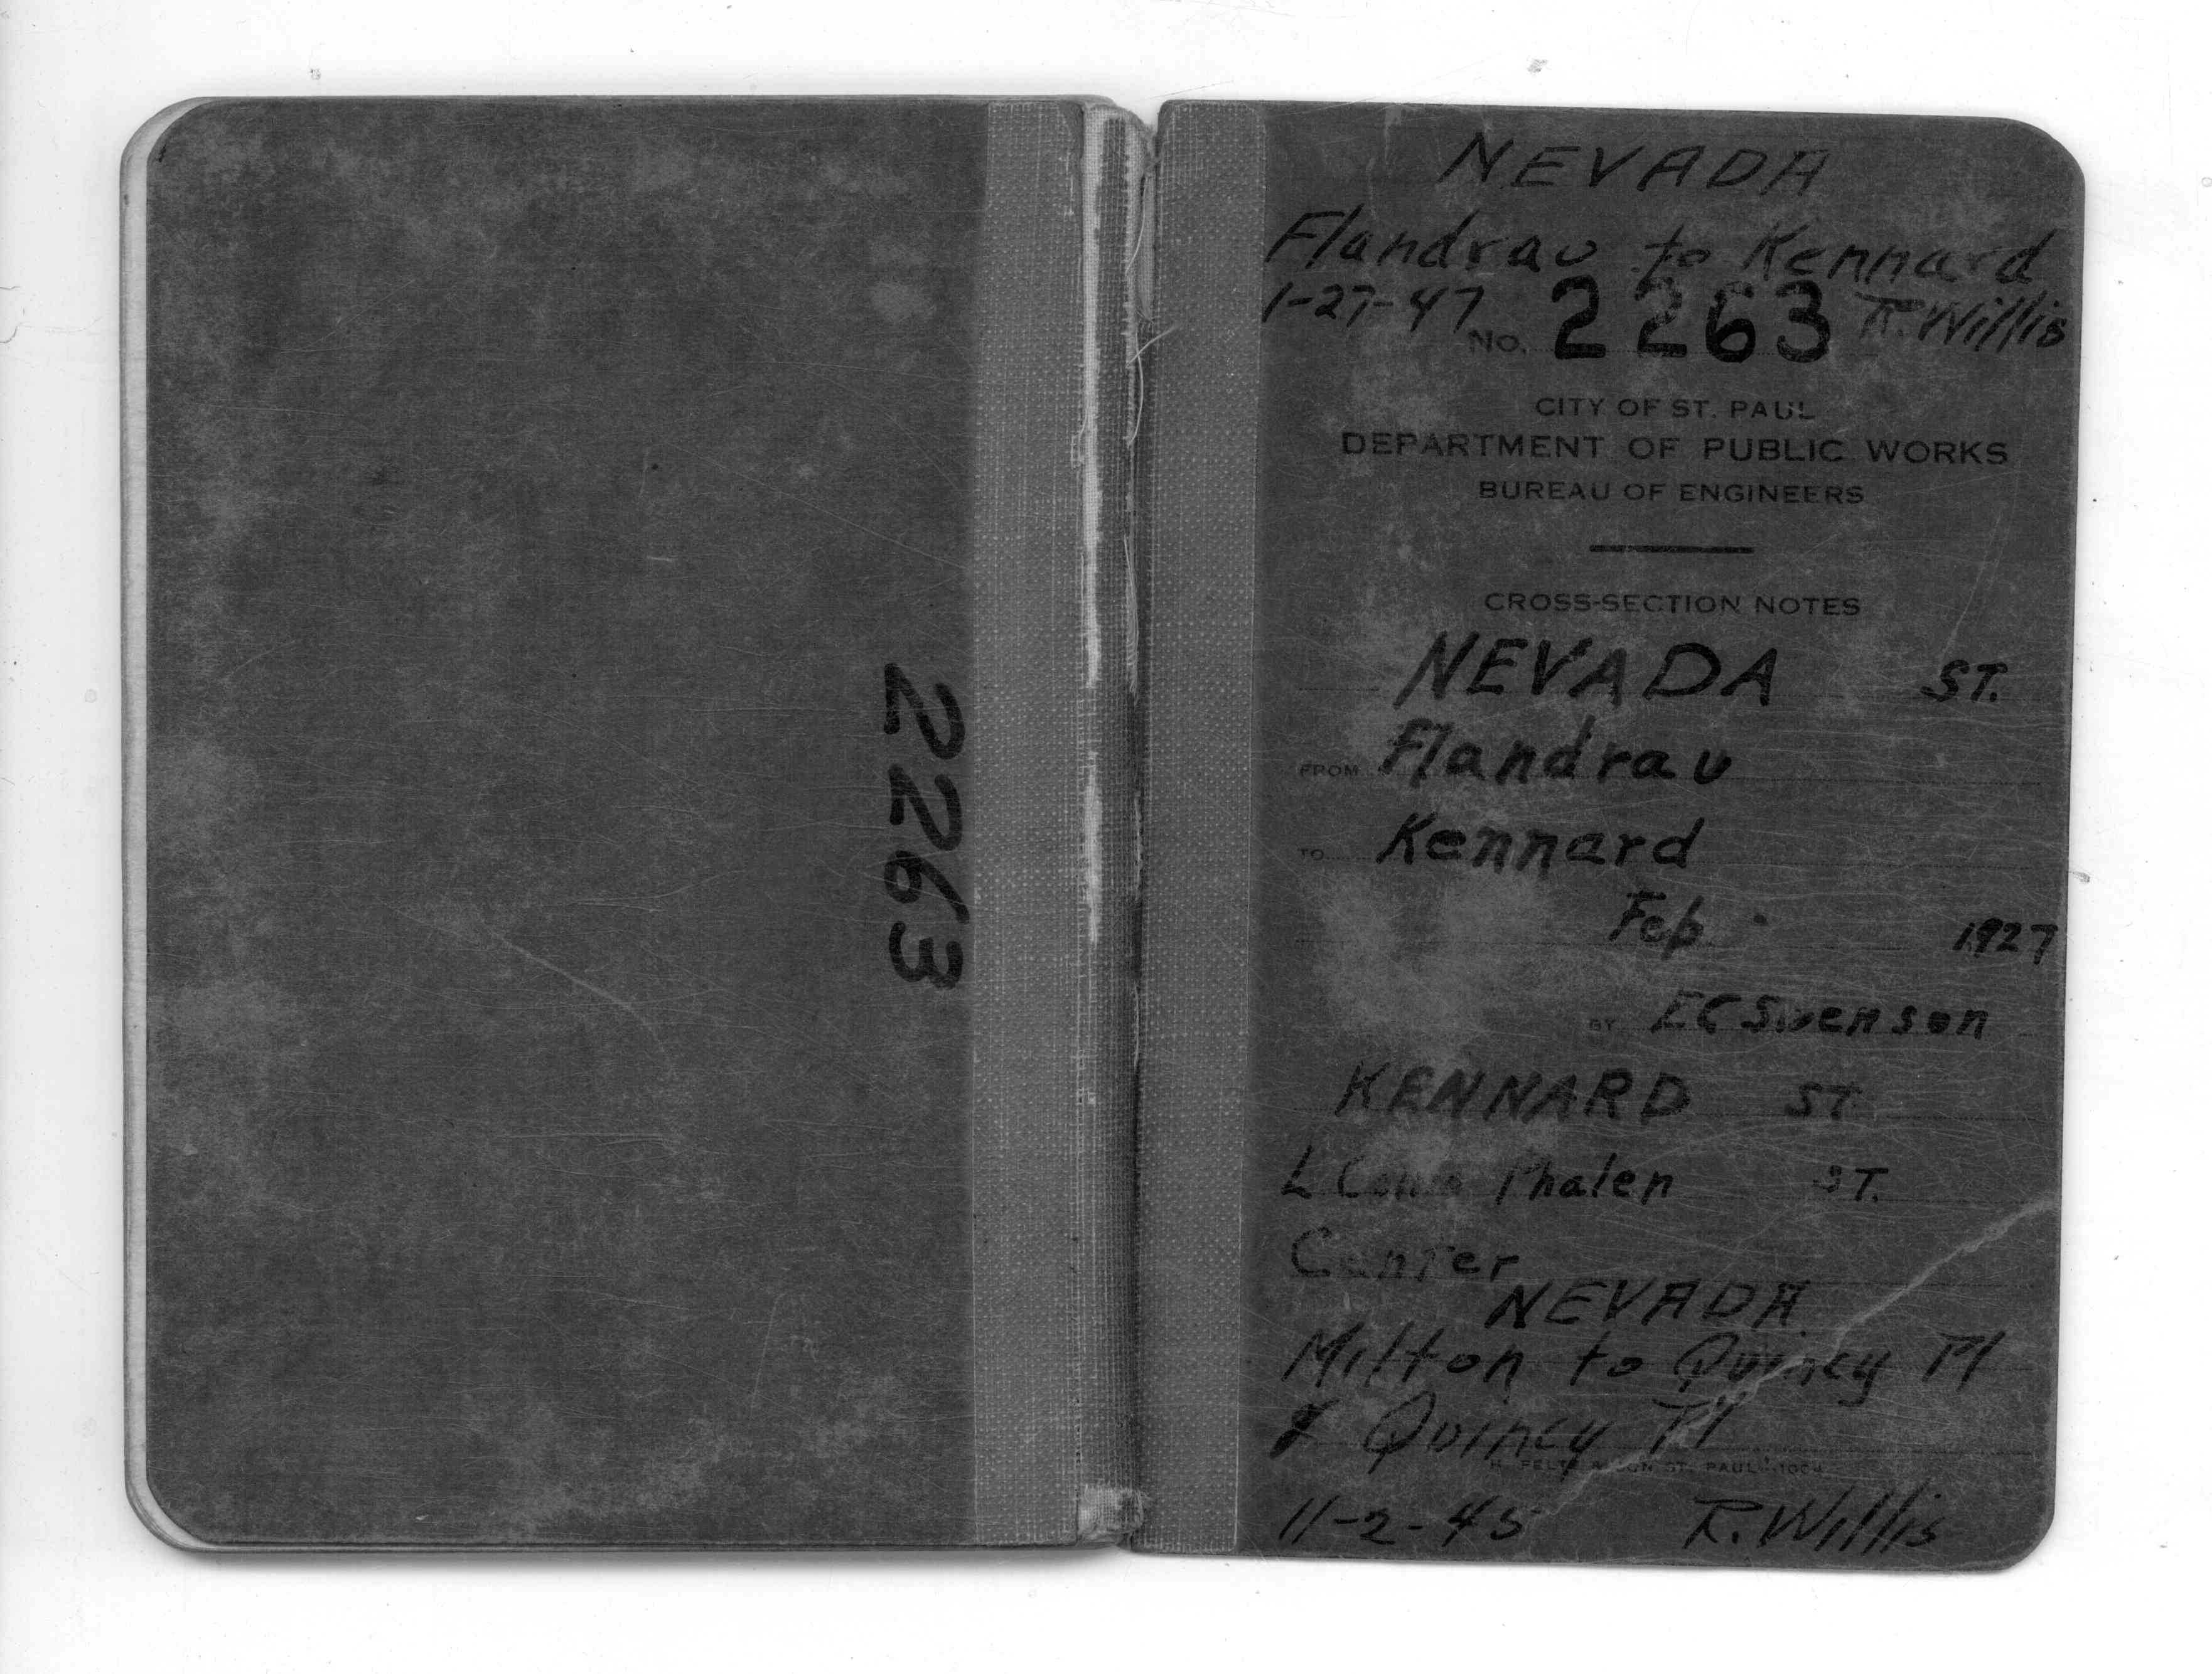 2263
NEVADA
Flandrau to Kennard
1-27-47 No. 2263 R. Willis
CITY OF ST. PAUL
DEPARTMENT OF PUBLIC WORKS
BUREAU OF ENGINEERS
CROSS-SECTION NOTES
NEVADA ST.
FROM Flandrau
TO Kennard
Feb. 1927
BY E C Swenson
KENNARD ST
L Phalen ST.
Center
NEVADA
Milton to Quincy Pl
& Quincy Pl
ST. PAUL
11-2-45 R. Willis